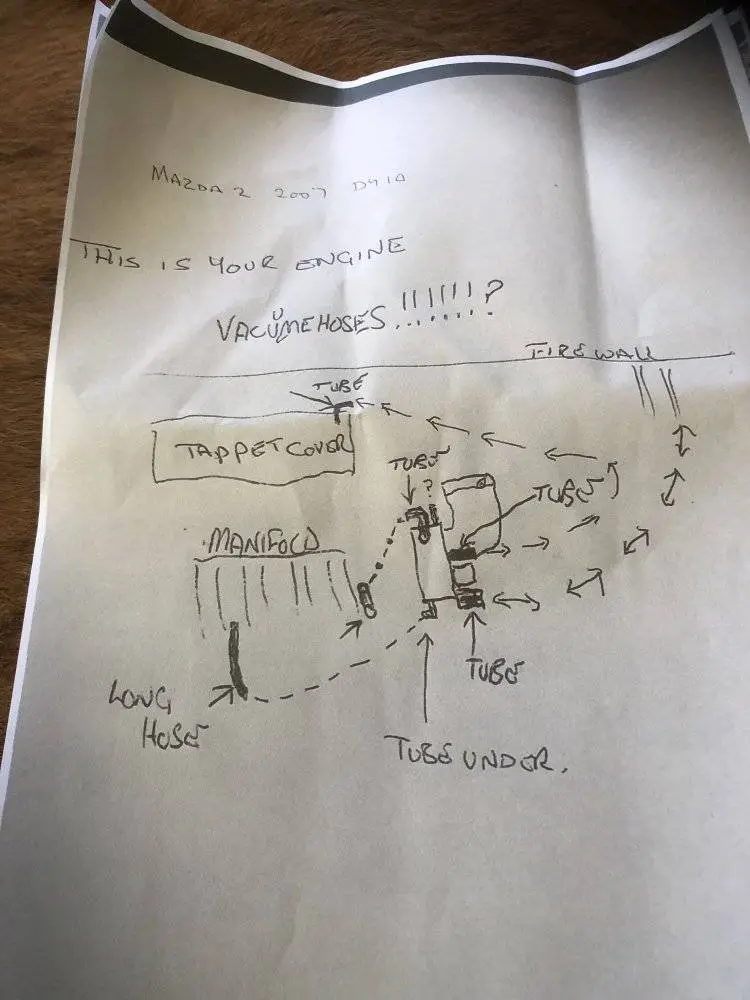 MAZDA 2 2007 DY10
THIS IS YOUR ENGINE
VACUMEHOSES !!!!!!!?
U
FIREWALL
TUBE
TAPPET COVER
TUBE
?
TUBE
MANIFOLD
TUBE
LONG
HOSE
TUBE UNDER.